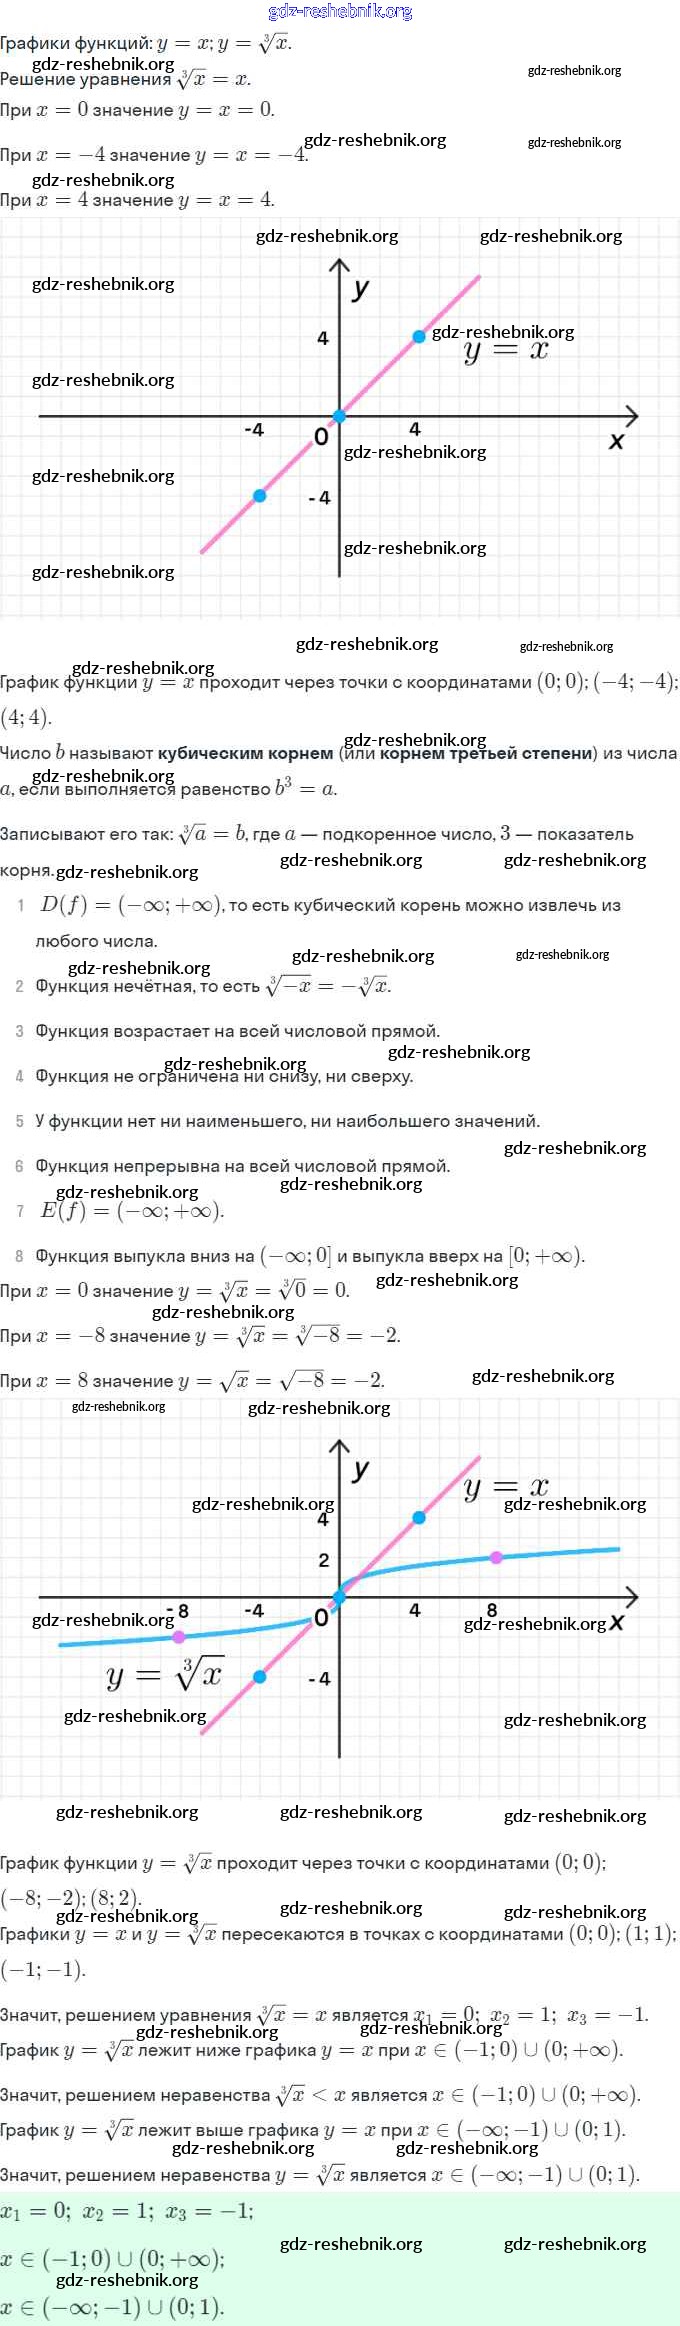 gdz-reshebnik.org
Графики функций: y = x; y = ∛x.
gdz-reshebnik.org
Решение уравнения ∛x = x.
gdz-reshebnik.org
При x = 0 значение y = x = 0.
gdz-reshebnik.org
gdz-reshebnik.org
При x = −4 значение y = x = −4.
gdz-reshebnik.org
При x = 4 значение y = x = 4.
gdz-reshebnik.org gdz-reshebnik.org
gdz-reshebnik.org
y
4
gdz-reshebnik.org
y = x
gdz-reshebnik.org
-4 0 4 x
gdz-reshebnik.org
gdz-reshebnik.org
-4
gdz-reshebnik.org
gdz-reshebnik.org
gdz-reshebnik.org gdz-reshebnik.org
gdz-reshebnik.org
График функции y = x проходит через точки с координатами (0; 0); (−4; −4);
(4; 4).
gdz-reshebnik.org
Число b называют кубическим корнем (или корнем третьей степени) из числа
gdz-reshebnik.org
a, если выполняется равенство b³ = a.
Записывают его так: ∛a = b, где a — подкоренное число, 3 — показатель
gdz-reshebnik.org gdz-reshebnik.org
корня.
gdz-reshebnik.org
1 D(f) = (−∞; +∞), то есть кубический корень можно извлечь из
любого числа.
gdz-reshebnik.org gdz-reshebnik.org
gdz-reshebnik.org
2 Функция нечётная, то есть ∛−x = −∛x.
3 Функция возрастает на всей числовой прямой.
gdz-reshebnik.org
gdz-reshebnik.org
4 Функция не ограничена ни снизу, ни сверху.
5 У функции нет ни наименьшего, ни наибольшего значений.
gdz-reshebnik.org
6 Функция непрерывна на всей числовой прямой.
gdz-reshebnik.org gdz-reshebnik.org
7 E(f) = (−∞; +∞).
8 Функция выпукла вниз на (−∞; 0] и выпукла вверх на [0; +∞).
gdz-reshebnik.org
При x = 0 значение y = ∛x = ∛0 = 0.
gdz-reshebnik.org
При x = −8 значение y = ∛x = ∛−8 = −2.
gdz-reshebnik.org
При x = 8 значение y = √x = √−8 = −2.
gdz-reshebnik.org gdz-reshebnik.org
y
y = x
gdz-reshebnik.org gdz-reshebnik.org
4
2
-8 -4 0 4 8 x
gdz-reshebnik.org gdz-reshebnik.org
y = ∛x
-4
gdz-reshebnik.org gdz-reshebnik.org
gdz-reshebnik.org gdz-reshebnik.org gdz-reshebnik.org
График функции y = ∛x проходит через точки с координатами (0; 0);
(−8; −2); (8; 2).
gdz-reshebnik.org gdz-reshebnik.org gdz-reshebnik.org
Графики y = x и y = ∛x пересекаются в точках с координатами (0; 0); (1; 1);
(−1; −1).
Значит, решением уравнения ∛x = x является x₁ = 0; x₂ = 1; x₃ = −1.
gdz-reshebnik.org gdz-reshebnik.org
График y = ∛x лежит ниже графика y = x при x ∈ (−1; 0) ∪ (0; +∞).
Значит, решением неравенства ∛x < x является x ∈ (−1; 0) ∪ (0; +∞).
График y = ∛x лежит выше графика y = x при x ∈ (−∞; −1) ∪ (0; 1).
gdz-reshebnik.org gdz-reshebnik.org
Значит, решением неравенства y = ∛x является x ∈ (−∞; −1) ∪ (0; 1).
x₁ = 0; x₂ = 1; x₃ = −1;
gdz-reshebnik.org gdz-reshebnik.org
x ∈ (−1; 0) ∪ (0; +∞);
gdz-reshebnik.org
x ∈ (−∞; −1) ∪ (0; 1).